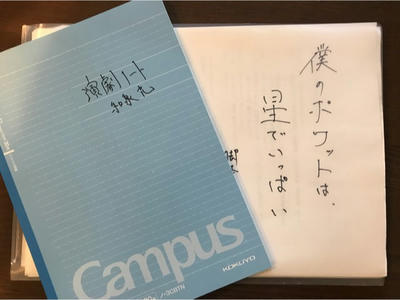 演劇ノート
和泉
Campus
KOKUYO
僕のポケットは、
星でいっぱい
脚